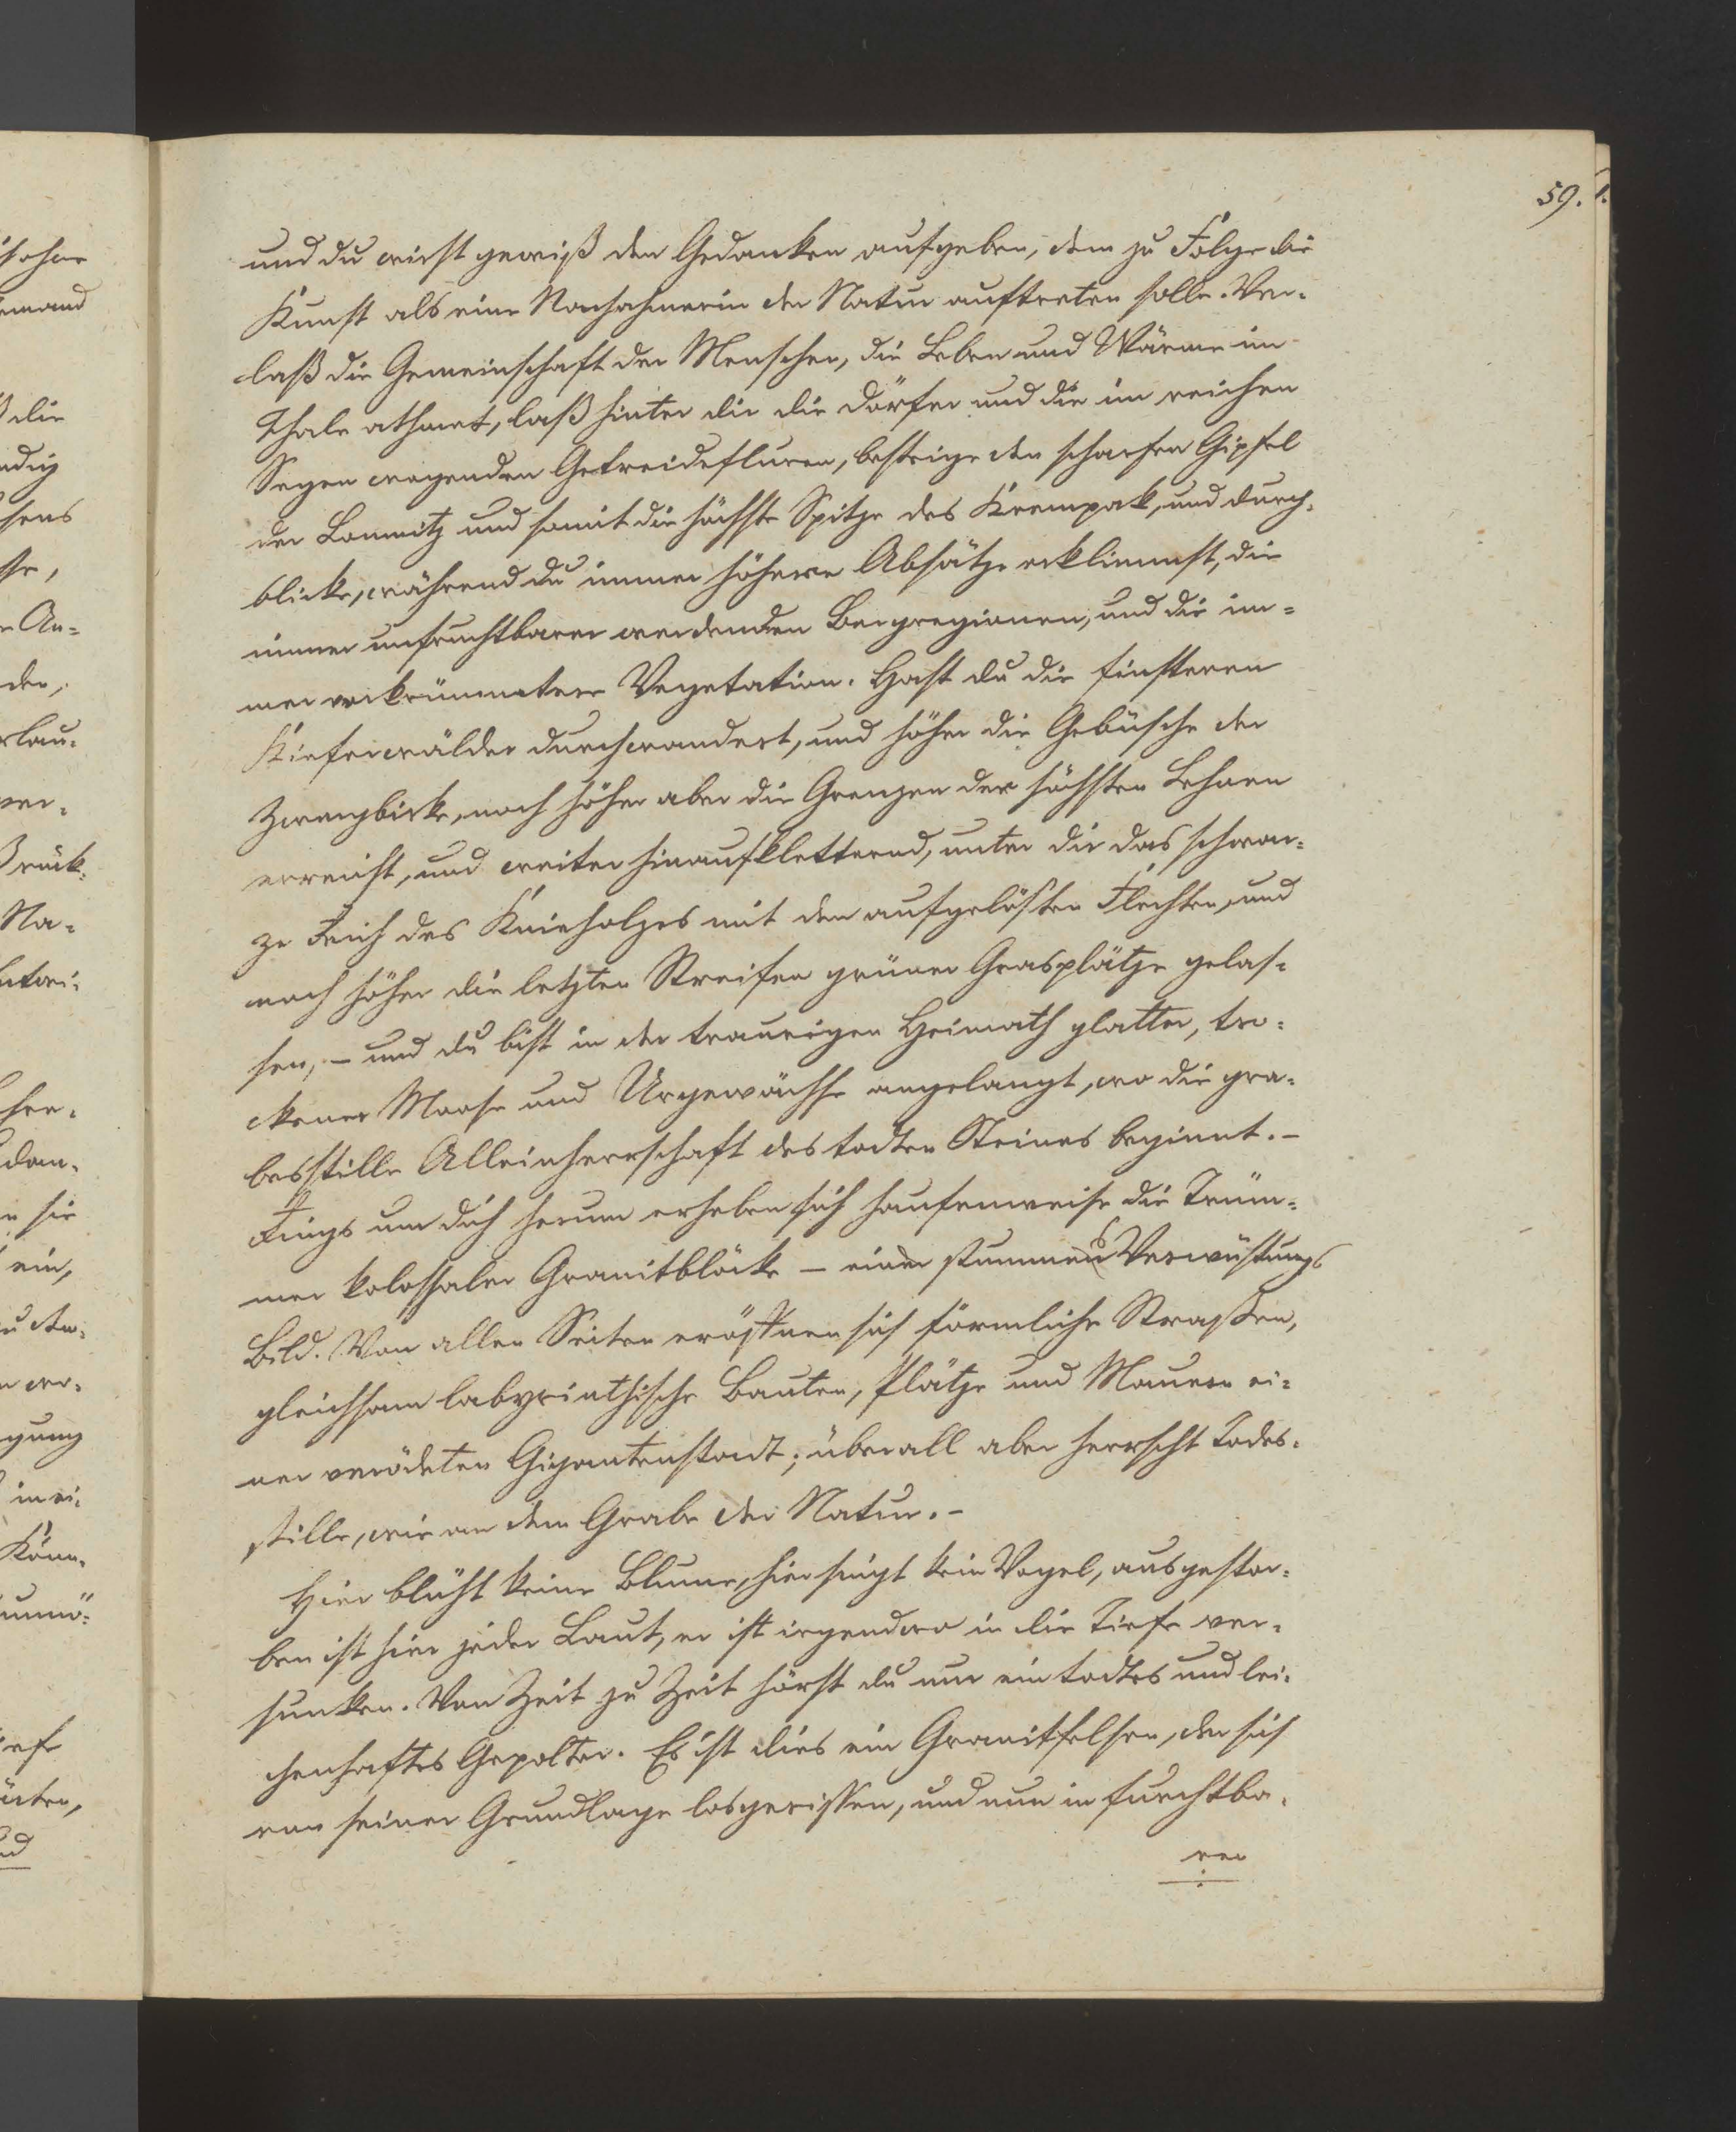 59.
und du wirst gewiß den Gedanken aufgeben, dem zu Folge die
Kunst als eine Nachahmerin der Natur auftreten solle. Ver-
laß die Gemeinschaft der Menschen, die Leben und Wärme im
Thale athmet, laß hinter dir die Dörfer und die im reichen
Segen wogenden Getreidefluren, besteige den scharfen Gipfel
der Lomnitz und somit die höchste Spitze des Krempak, und durch-
blicke, während du immer höhere Absätze erklimmst, die
immer unfruchtbarer werdenden Bergregionen, und die im-
mer verkrümmtere Vegetation. Hast du die finsteren
Kieferwälder durchwandert, und höher die Gebüsche der
Zwergbirke, noch höher aber die Grenzen der höchsten Lehnen
erreicht, und weiter hinaufkletternd, unter dir das schwar-
ze Reich des Knieholzes mit den aufgelösten Flechten, und
noch höher die letzten Streifen grüner Grasplätze gelas-
sen, – und du bist in der traurigen Heimath glatter, tro-
ckener Moose und Urgewächse angelangt, wo die gra-
besstille Alleinherrschaft des todten Steines beginnt. –
Rings um dich herum erheben sich haufenweise die Trüm-
mer kolossaler Granitblöcke – ein stummes Verwüstungs
Bild. Von allen Seiten eröffnen sich förmliche Straßen,
gleichsam labyrinthische Bauten, Plätze und Mauern ei-
ner verödeten Gigantenstadt; überall aber herrscht Todes-
stille, wie an dem Grabe der Natur. –
Hier blüht keine Blume, hier singt kein Vogel, ausgestor-
ben ist hier jeder Laut, er ist irgendwo in die Tiefe ver-
sunken. Von Zeit zu Zeit hörst du nur ein todtes und lei-
chenhaftes Gepolter. Es ist dies ein Granitfelsen, der sich
von seiner Grundlage losgerissen, und nun in furchtba-
rer